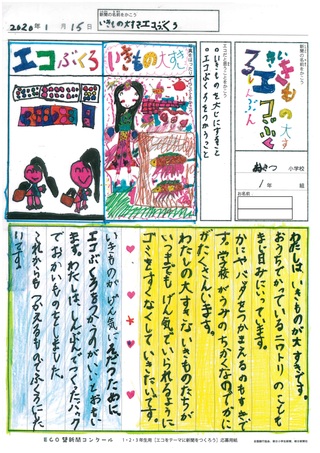 新聞の名前をかこう
2020年1月15日
いきもの大すきエコぶくろ
エコぶくろ
いきもの大すき
エコだと思うことをかこう
・いきものを大じにすること
・エコぶくろをつかうこと
新聞の名前をかこう
いきもの大すき
エコぶくろ
しんぶん
小学校
1年
組
お名前
わたしは、いきものが大すきです。
おうちでかっているニワトリのことも
まい日みにいっています。
カニやバッタをつかまえるのもすきで
す。学校がうみちかくなのでかに
がたくさんいます。
わたしの大すきないきものたちが
いつまでもげん気でいられるように
ゴミをすくなくしていきたいです。
いきものがげん気に
ために、
エコぶくろをつかうのがいいとおもい
ます。わたしは、しんぶんでつくったバック
でおかいものをしました。
これからもつかえるものでふくろにした
いです。
ECO壁新聞コンクール
1・2・3年生用「エコをテーマに新聞をつくろう」応募用紙